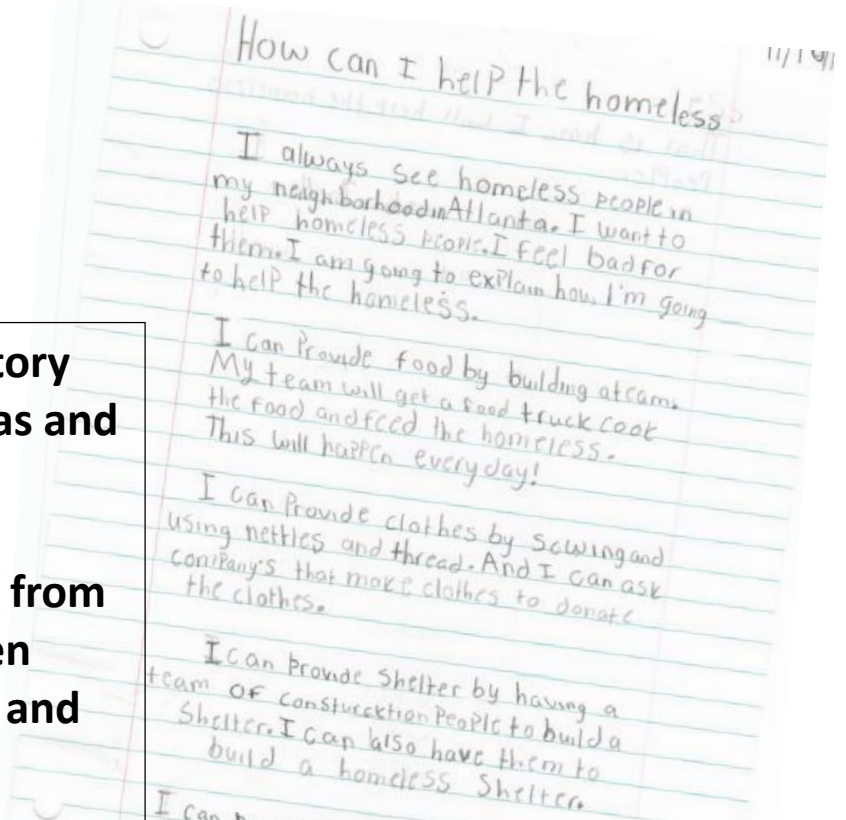 How can I help the homeless
I always see homeless people in
my neighborhood in Atlanta. I want to
help homeless people. I feel bad for
them. I am going to explain how I'm going
to help the homeless.
I can Provide food by building a team.
My team will get a food truck cook
the food and feed the homeless.
This will happen everyday!
I can Provide clothes by sewing and
using nettles and thread. And I can ask
company's that make clothes to donate
the clothes.
I can provide shelter by having a
team of consturcktion People to build a
Shelter. I can also have them to
build a homeless Shelter.
I can
tory
as and
from
en
and